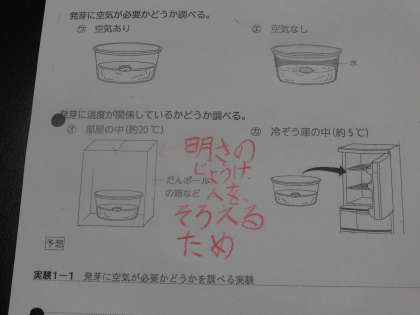 発芽に空気が必要かどうか調べる。
㋒ 空気あり
㋓ 空気なし
水
発芽に温度が関係しているかどうか調べる。
㋔ 部屋の中(約20℃)
㋕ 冷ぞう庫の中(約5℃)
だんボール
の箱など
明さの
じょうけ
んを、
そろえる
ため
予想
実験1ー1 発芽に空気が必要かどうかを調べる実験